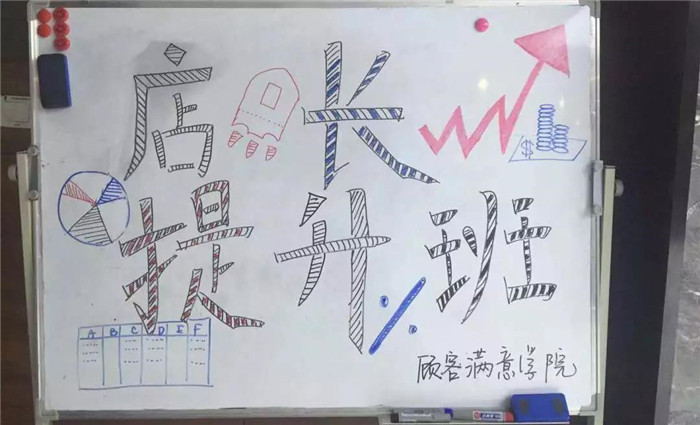 店长
$
提升班
%
A B C D E F
顾客满意学院